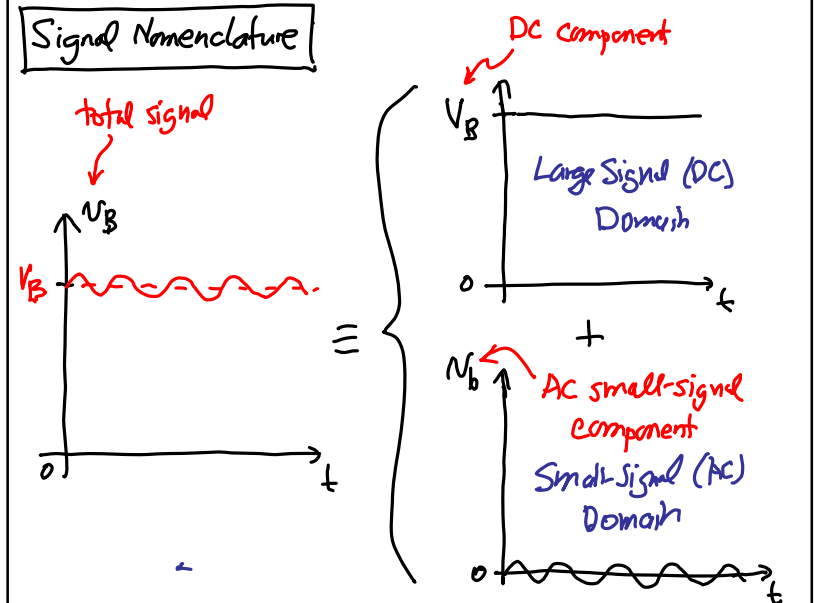 Signal Nomenclature
total signal
v_B
V_B
0
t
≡
DC component
V_B
Large Signal (DC)
Domain
0
t
+
v_b
AC small-signal
component
Small-Signal (AC)
Domain
0
t